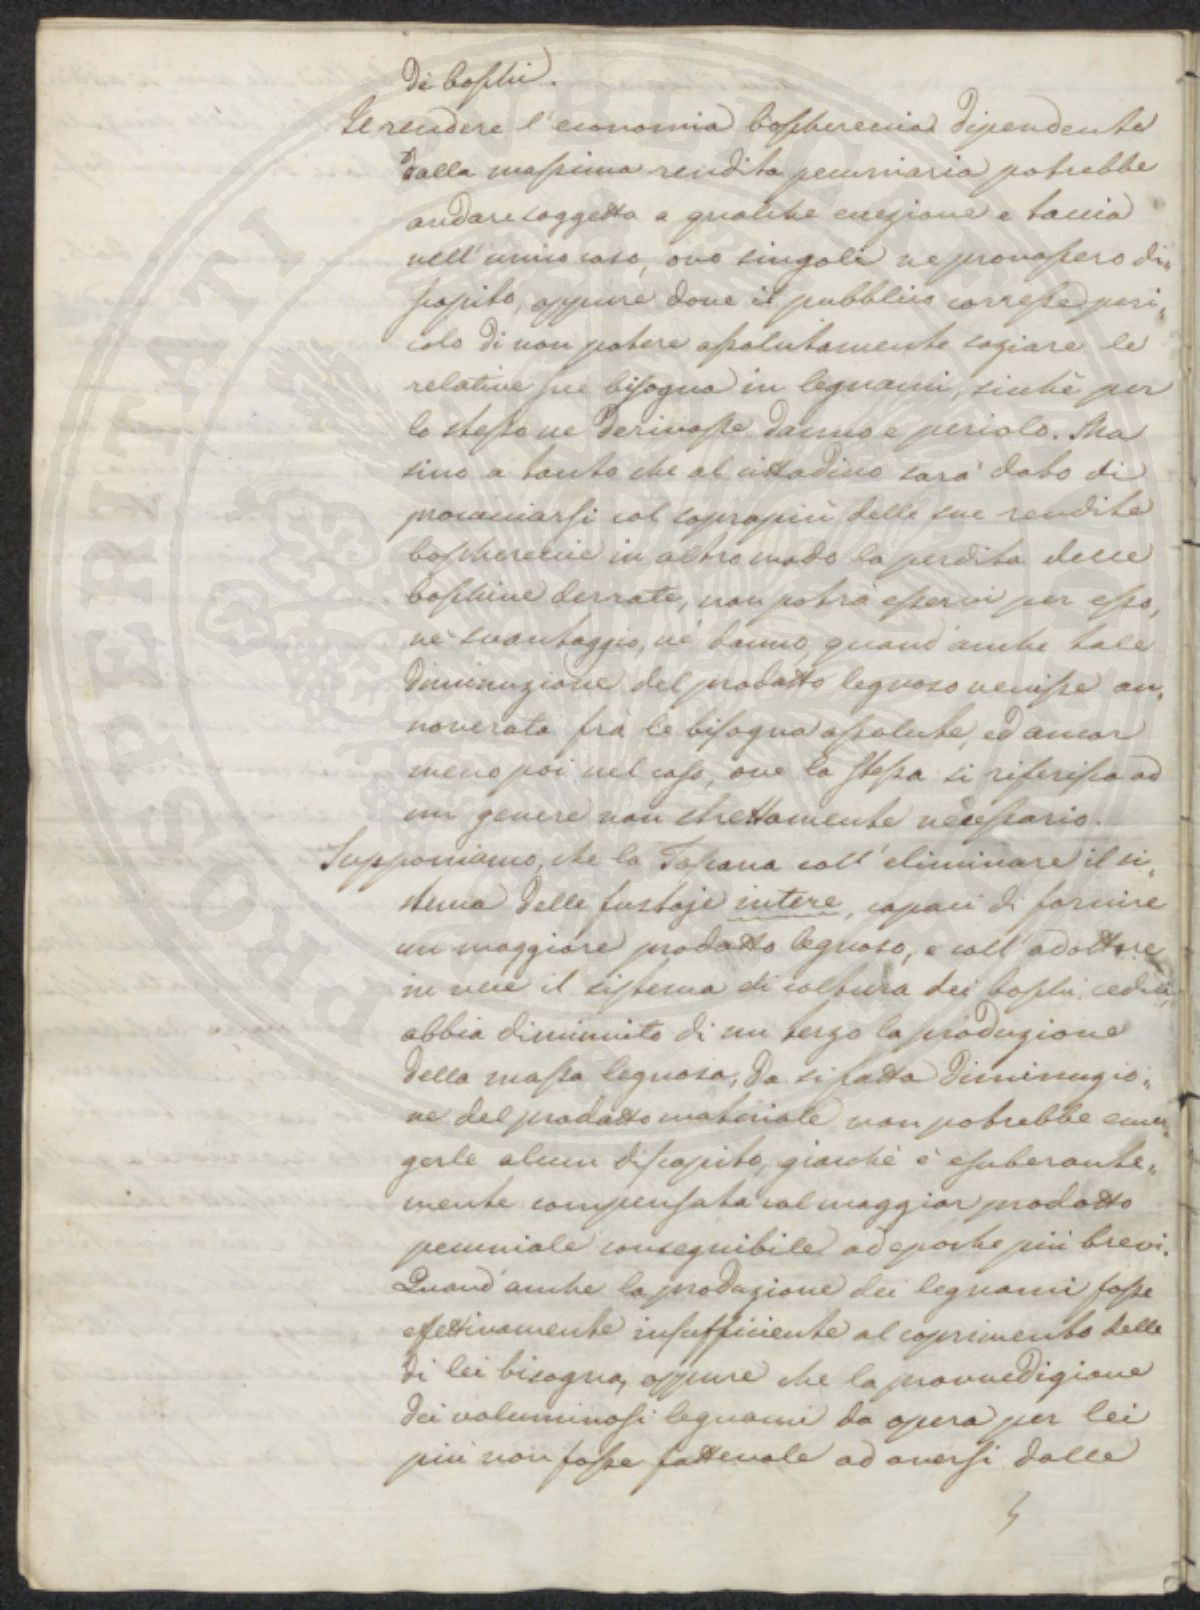 di boschi.
Il rendere l'economia boschereccia dipendente
dalla massima rendita pecuniaria potrebbe
andare soggetta a qualche eccezione e taccia
nell'unico caso, ove singoli ne provassero di„
scapito, oppure dove il pubblico corresse peri„
colo di non potere assolutamente saziare le
relative sue bisogna in legnami, sicchè per
lo stesso ne derivasse danno e periolo. Ma
sino a tanto che al cittadino sarà dato di
procacciarsi col soprapiù delle sue rendite
boschereccie in altro modo la perdita delle
boschive derrate, non potrà esservi per esso,
nè svantaggio, nè danno quand'anche tale
diminuzione del prodotto legnoso venisse an„
noverata frà le bisogna assolute, ed ancor
meno poi nel caso, ove la stessa si riferisca ad
un genere non strettamente necessario.
Supponiamo, che la Toscana coll'eliminare il si„
stema delle fustaje intere, capaci di fornire
un maggiore prodotto legnoso, e coll'adottare
in vece il sistema di coltura dei boschi cedui,
abbia diminuito di un terzo la produzione
della massa legnosa, da sifatta diminuzio„
ne del prodotto materiale non potrebbe emer„
gerle alcun discapito, giacchè è esuberante„
mente compensata col maggior prodotto
pecuniale conseguibile ad epoche più brevi.
Quand'anche la produzione dei legnami fosse
effettivamente insufficiente al coprimento delle
di lei bisogna, oppure che la provvedigione
dei voluminosi legnami da opera per lei
più non fosse fattevole ad aversi dalle
PUBLICAE PROSPERITATI